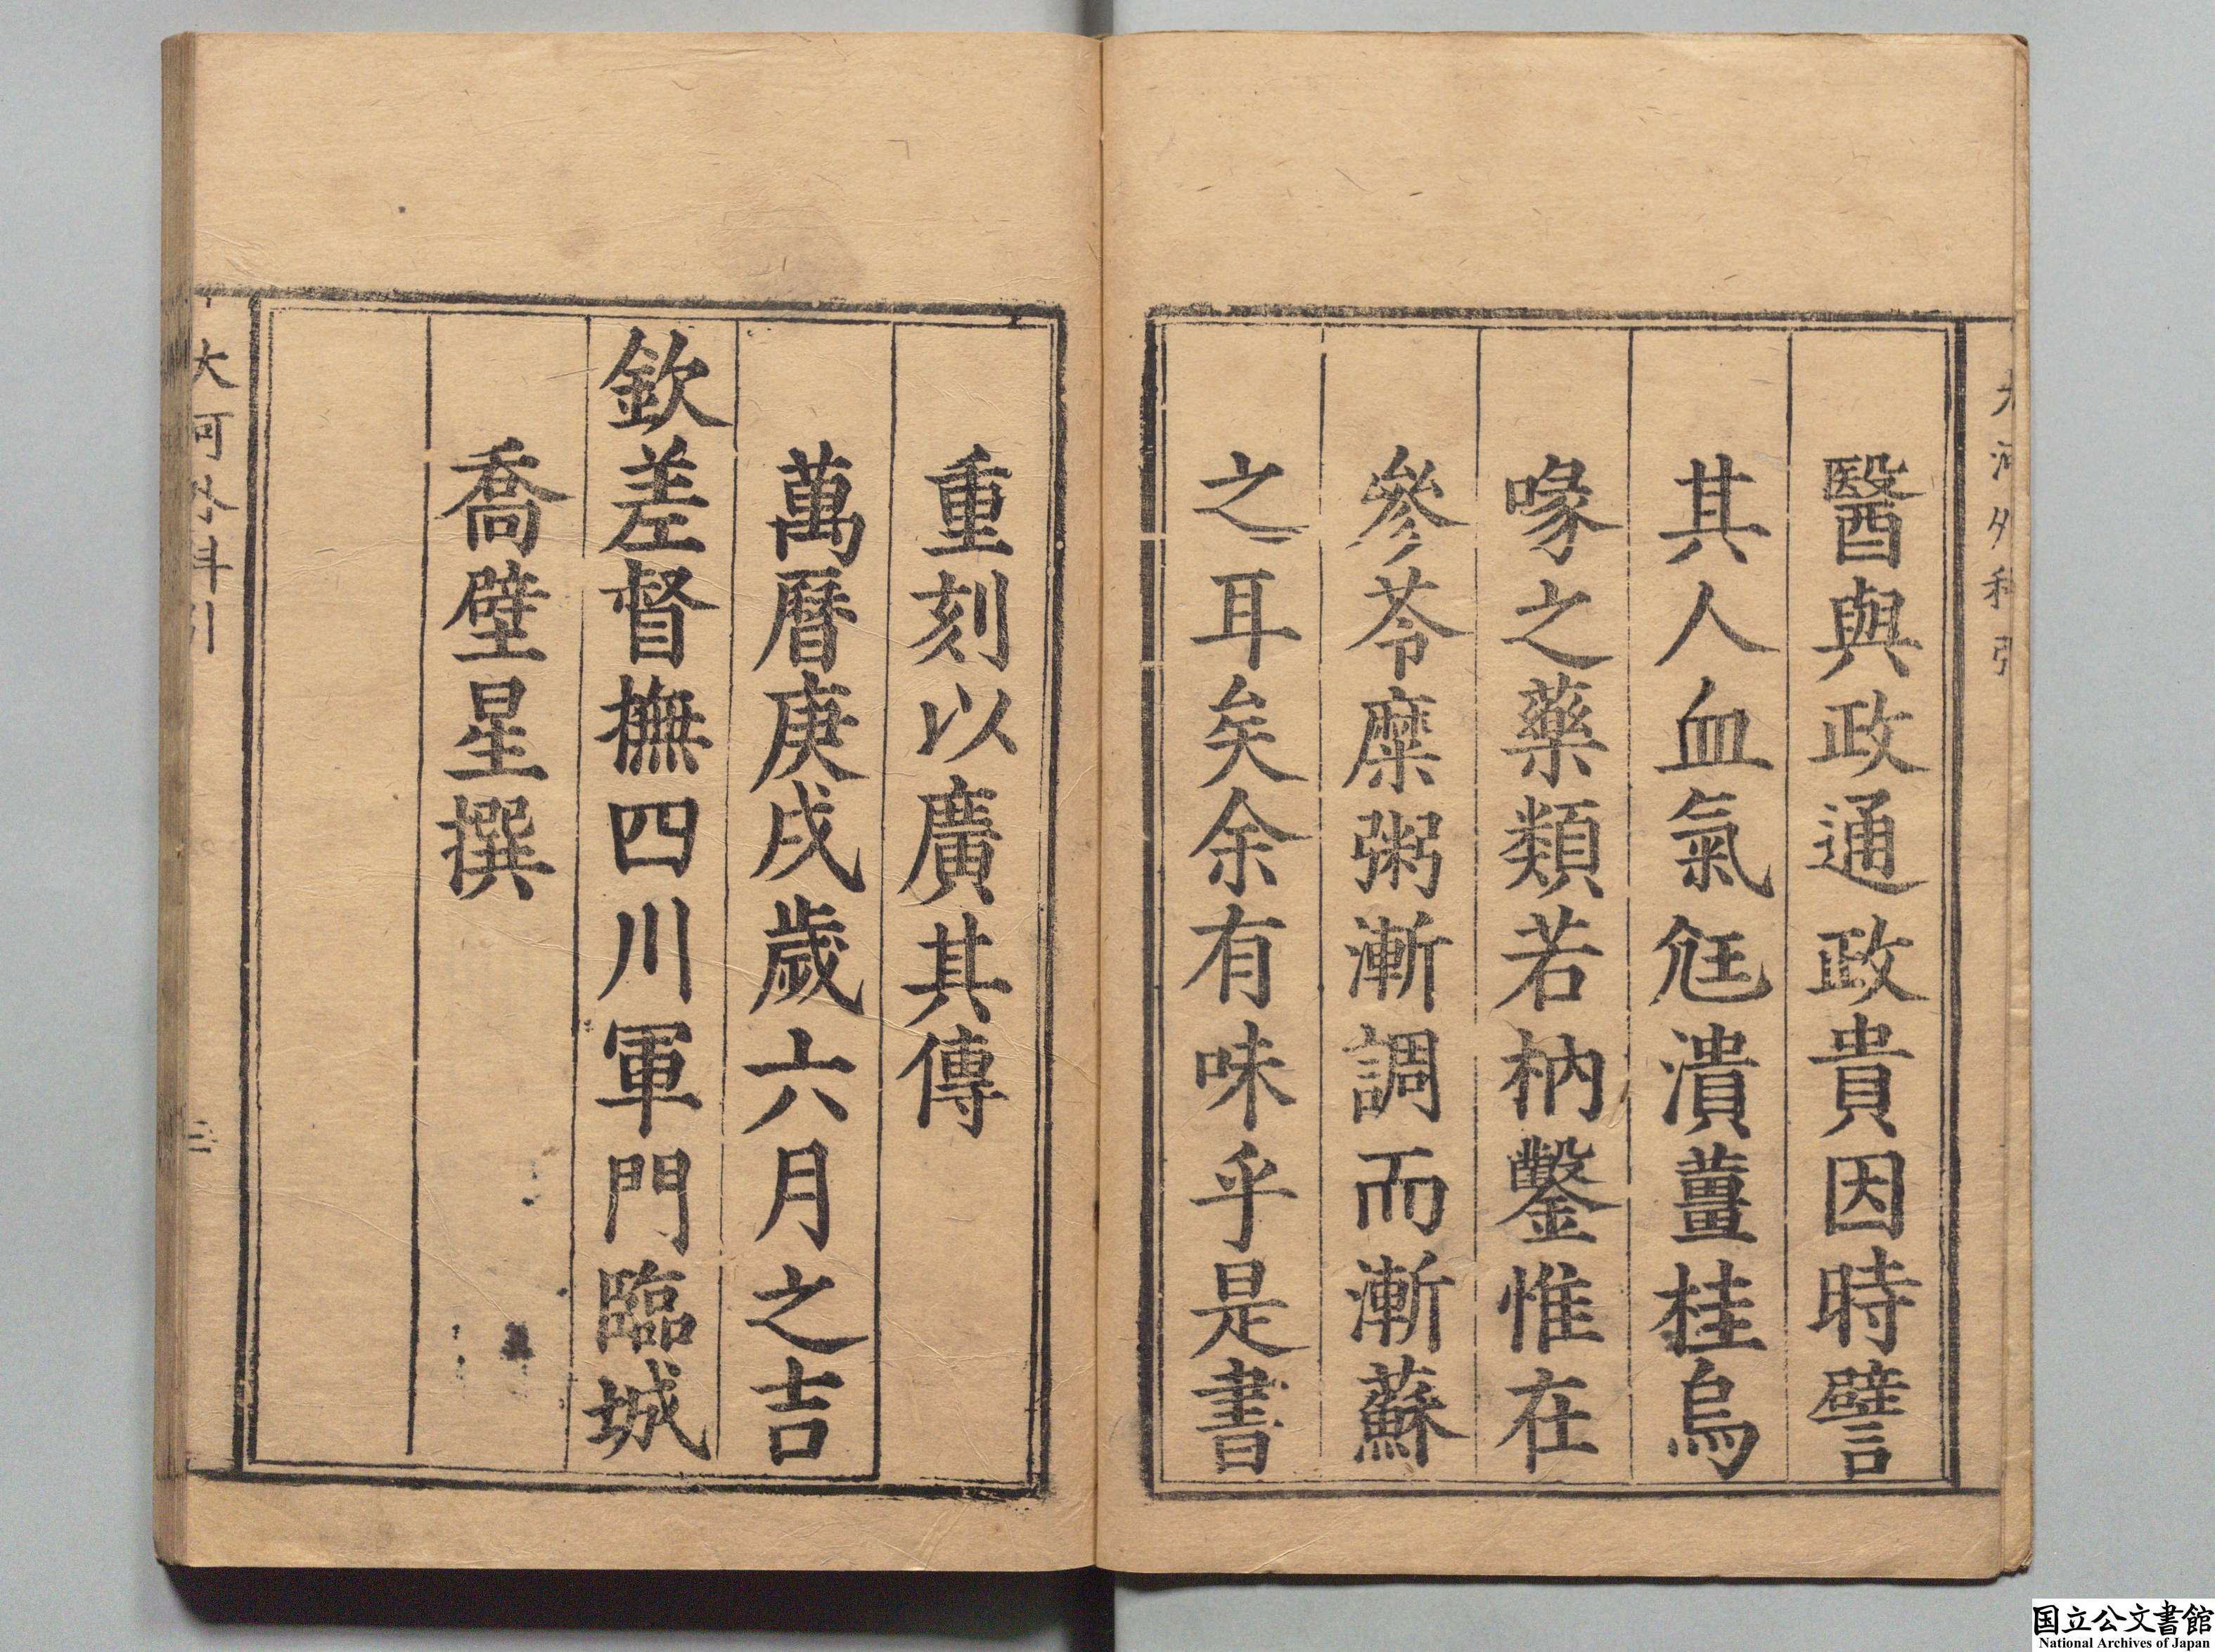 醫與政通政貴因時譬
其人血氣尫潰薑桂烏
喙之藥類若枘鑿惟在
參苓糜粥漸調而漸蘇
之耳矣余有味乎是書
重刻以廣其傳
萬曆庚戌歲六月之吉
欽差督撫四川軍門臨城
喬壁星撰
大河外科引
大河外科引
三
国立公文書館
National Archives of Japan